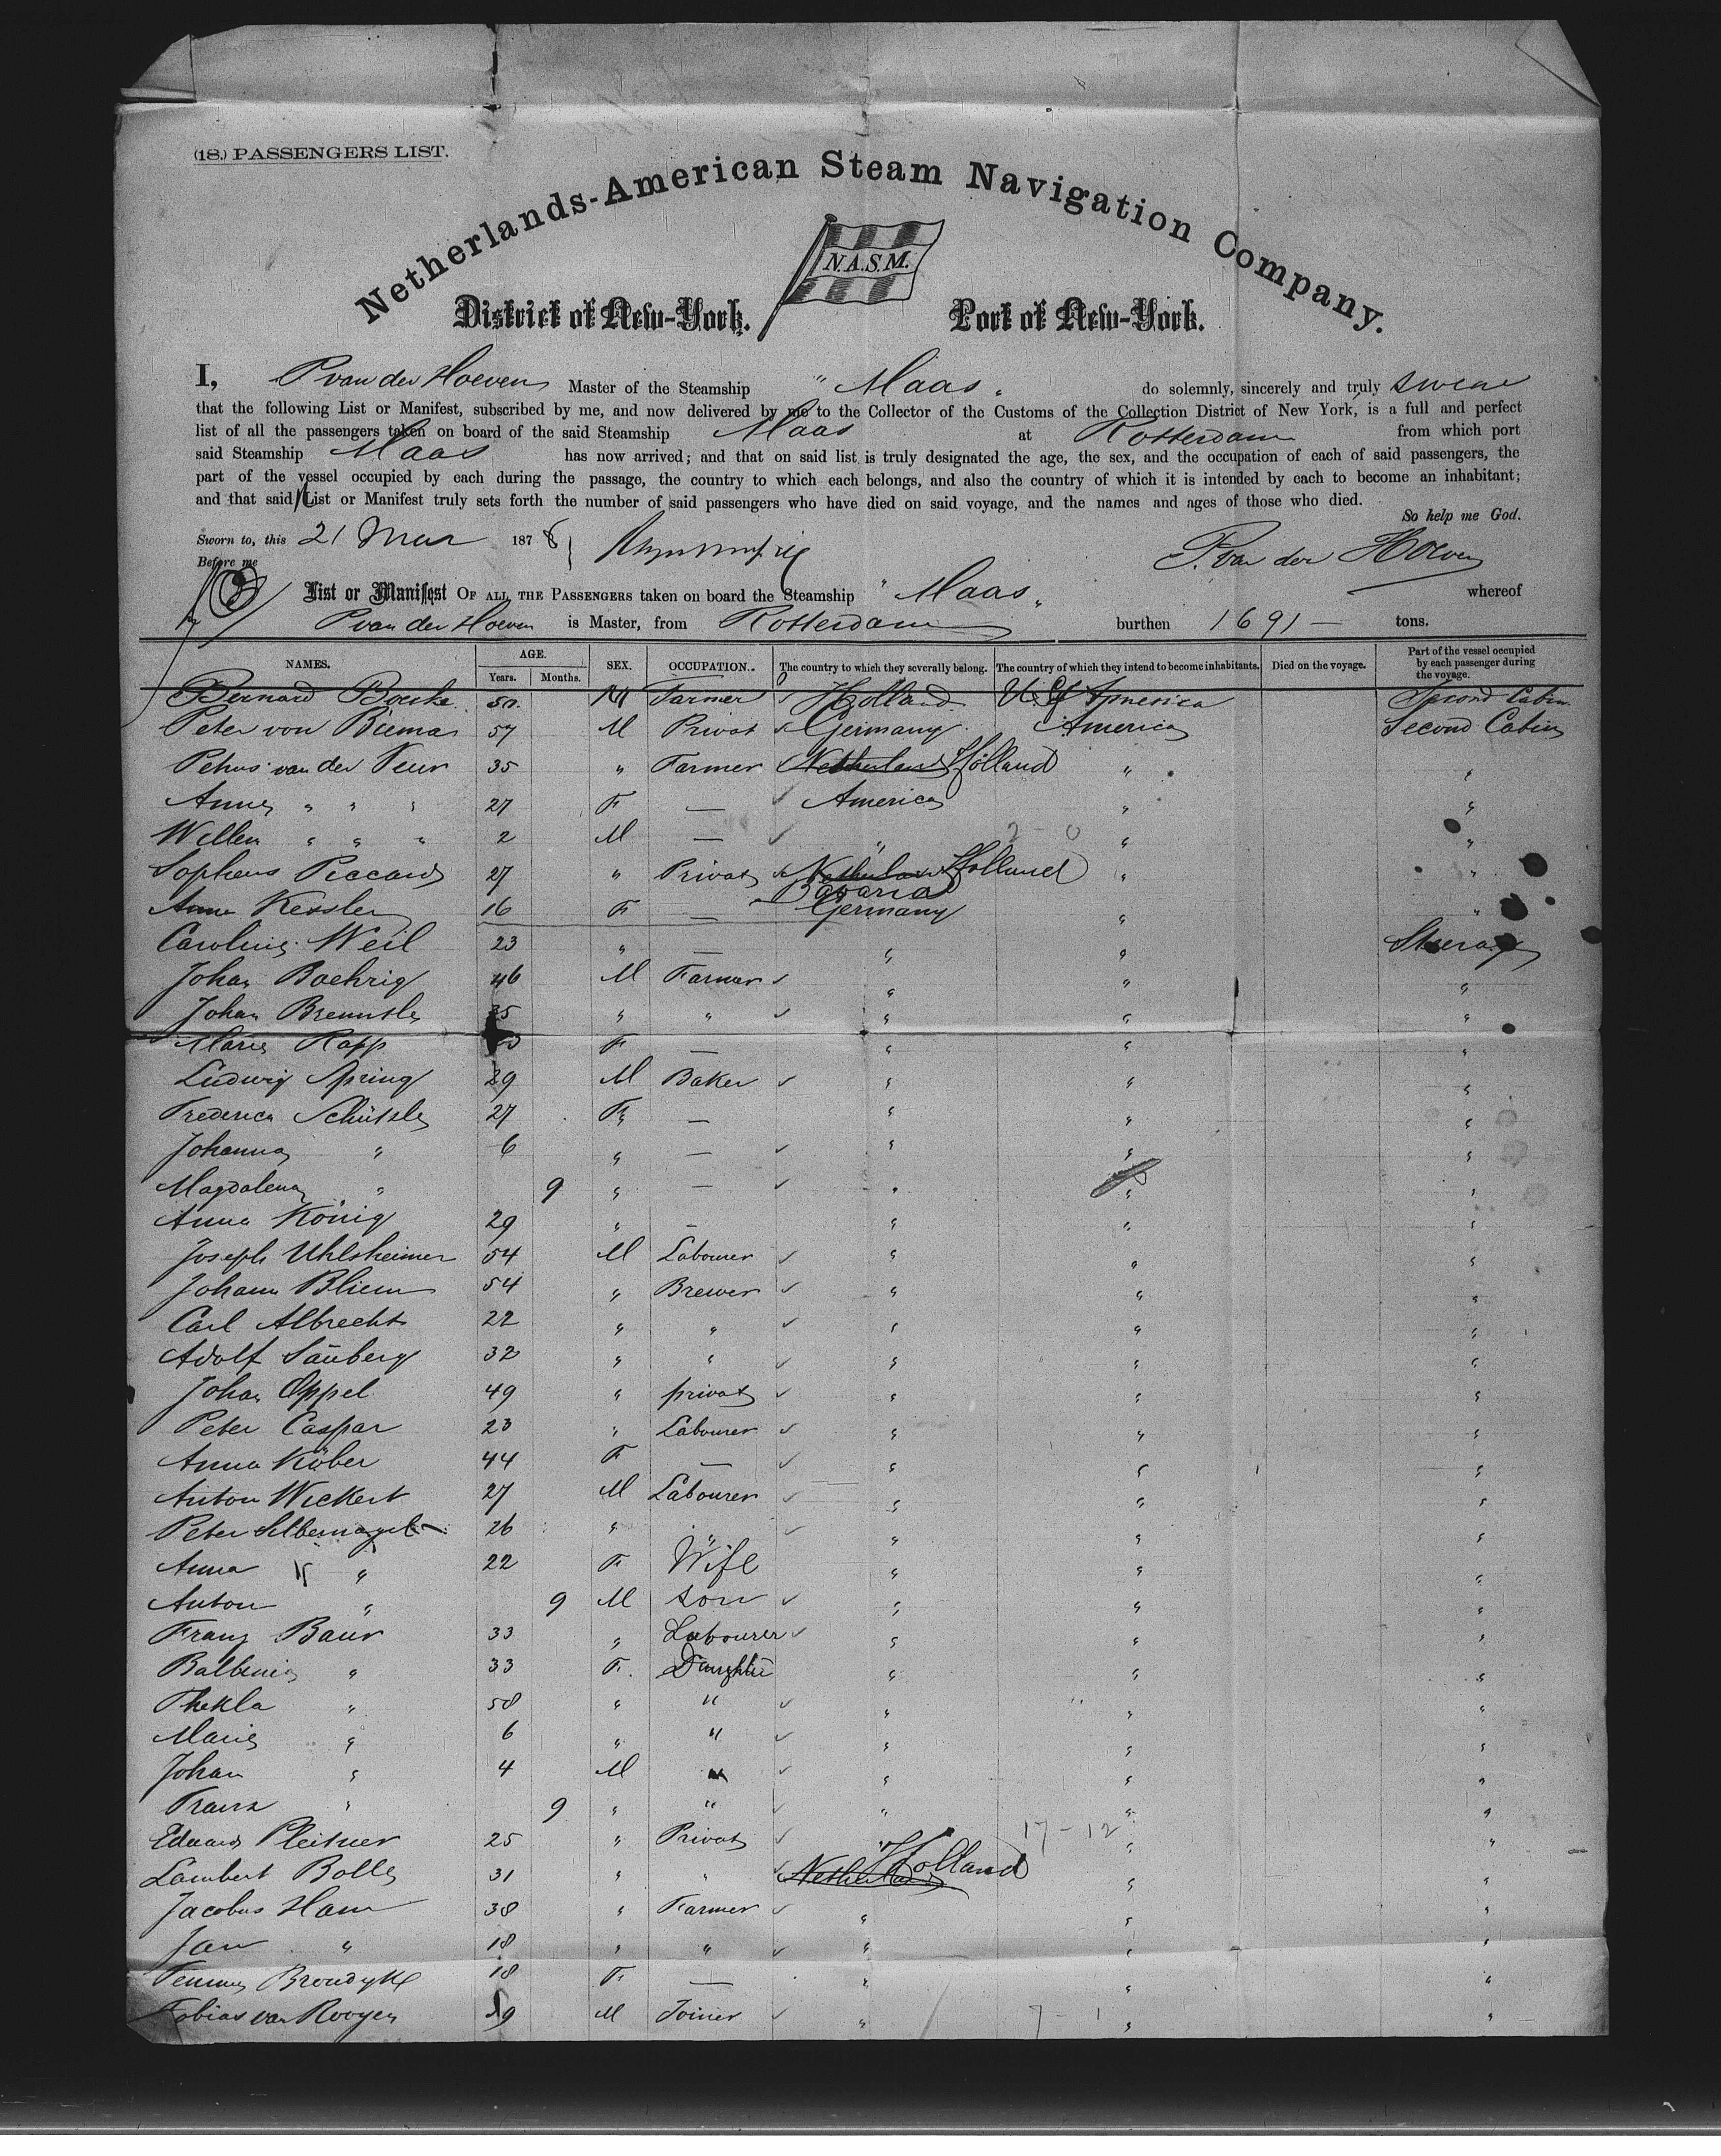 (18.) PASSENGERS LIST.
Netherlands-American Steam Navigation Company.
N.A.S.M.
District of New-York. Port of New-York.
I, P van der Hoeven Master of the Steamship " Maas " do solemnly, sincerely and truly swear
that the following List or Manifest, subscribed by me, and now delivered by me to the Collector of the Customs of the Collection District of New York, is a full and perfect
list of all the passengers taken on board of the said Steamship Maas at Rotterdam from which port
said Steamship Maas has now arrived; and that on said list is truly designated the age, the sex, and the occupation of each of said passengers, the
part of the vessel occupied by each during the passage, the country to which each belongs, and also the country of which it is intended by each to become an inhabitant;
and that said List or Manifest truly sets forth the number of said passengers who have died on said voyage, and the names and ages of those who died.
So help me God.
Sworn to, this 21 Mar 1878 P. van der Hoeven
Before me
List or Manifest OF ALL THE PASSENGERS taken on board the Steamship " Maas " whereof
P van der Hoeven is Master, from Rotterdam burthen 1691 — tons.
NAMES. AGE. Years. Months. SEX. OCCUPATION. The country to which they severally belong. The country of which they intend to become inhabitants. Died on the voyage. Part of the vessel occupied by each passenger during the voyage.
Bernard 50 M Farmer Holland U. S. of America Second Cabin
Peter von Biema 57 M Privat Germany America Second Cabin
Petrus van der Veur 35 " Farmer Netherland Holland " "
Anna " " " 27 F — America " "
Willem " " " 2 M — " 2-0 " "
Sophens Piccard 27 " Privat Netherland Holland " "
Anna Kessler 16 F — Bavaria Germany " "
Caroline Weil 23 " — " " Steerage
Johan Boehrig 46 M Farmer " " "
Johan 35 " " " " "
Marie Rapp F — " " "
Ludwig Spring 29 M Baker " " "
Frederica Schützle 27 F — " " "
Johanna " 6 " — " " "
Magdalena " 9 " — " " "
Anna König 29 " — " " "
Joseph Uhlsheimer 54 M Labourer " " "
Johann Bliem 54 " Brewer " " "
Carl Albrecht 22 " " " " "
Adolf Säuberg 32 " " " " "
Johan Oppel 49 " privat " " "
Peter Caspar 23 " Labourer " " "
Anna Köber 44 F — " " "
Anton Wickert 27 M Labourer " " "
Peter Silbernagel 26 " " " " "
Anna " 22 F Wife " " "
Anton " 9 M son " " "
Franz Baur 33 " Labourer " " "
Balbina " 33 F. Daughter " " "
Thekla " 58 " " " " "
Marie " 6 " " " " "
Johan " 4 M " " " "
Franz " 9 " " " " "
Eduard Pleitner 25 " Privat " 17-12 " "
Lambert Bolle 31 " " Netherland Holland " "
Jacobus Ham 38 " Farmer " " "
Jan " 18 " " " " "
Broudyk 18 F. — " " "
Tobias van Rooyen 39 M Joiner " 7-1 " "